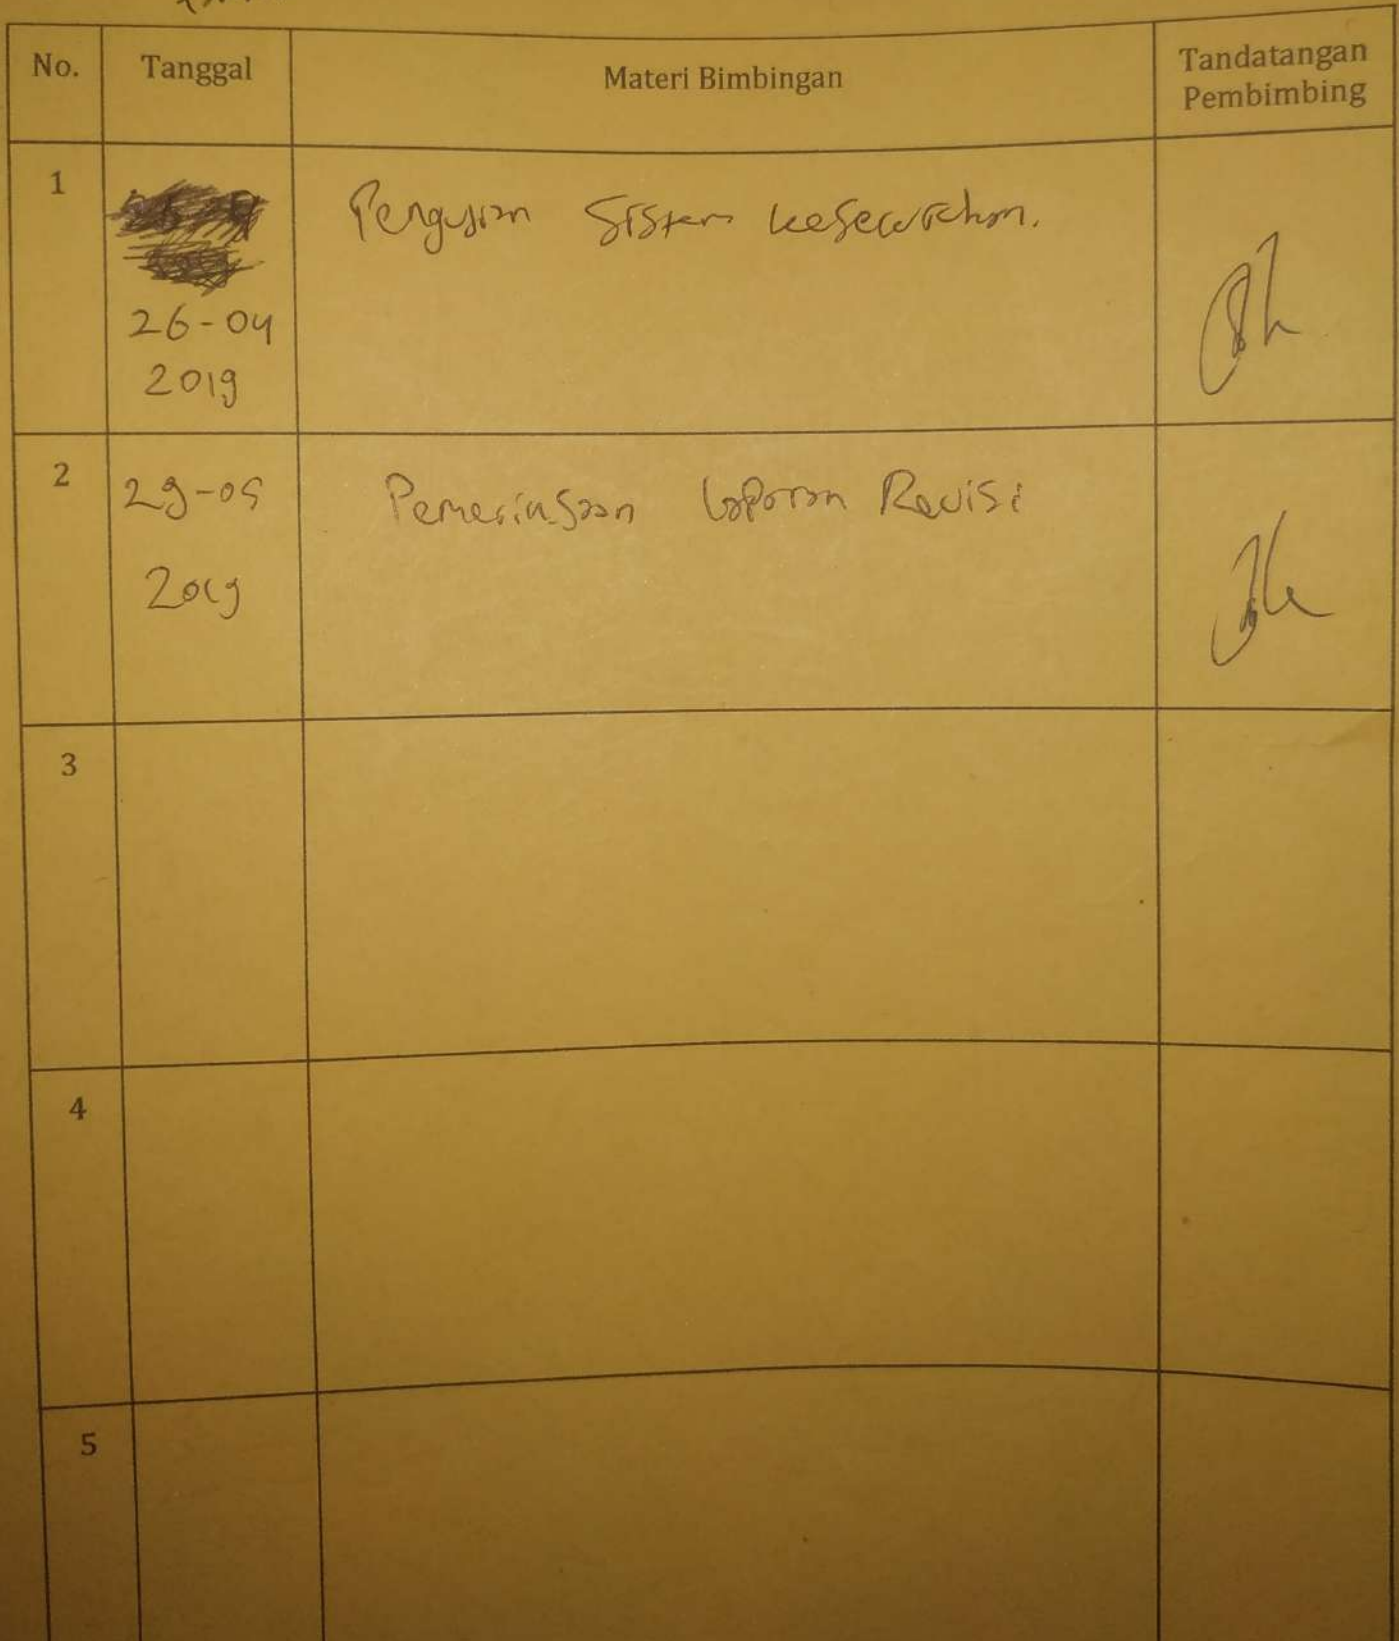 No. Tanggal Materi Bimbingan Tandatangan
Pembimbing
1 Pengujian Sistem keseluruhan.
26-04
2019
2 29-05 Pemeriksaan laporan Revisi
2019
3
4
5